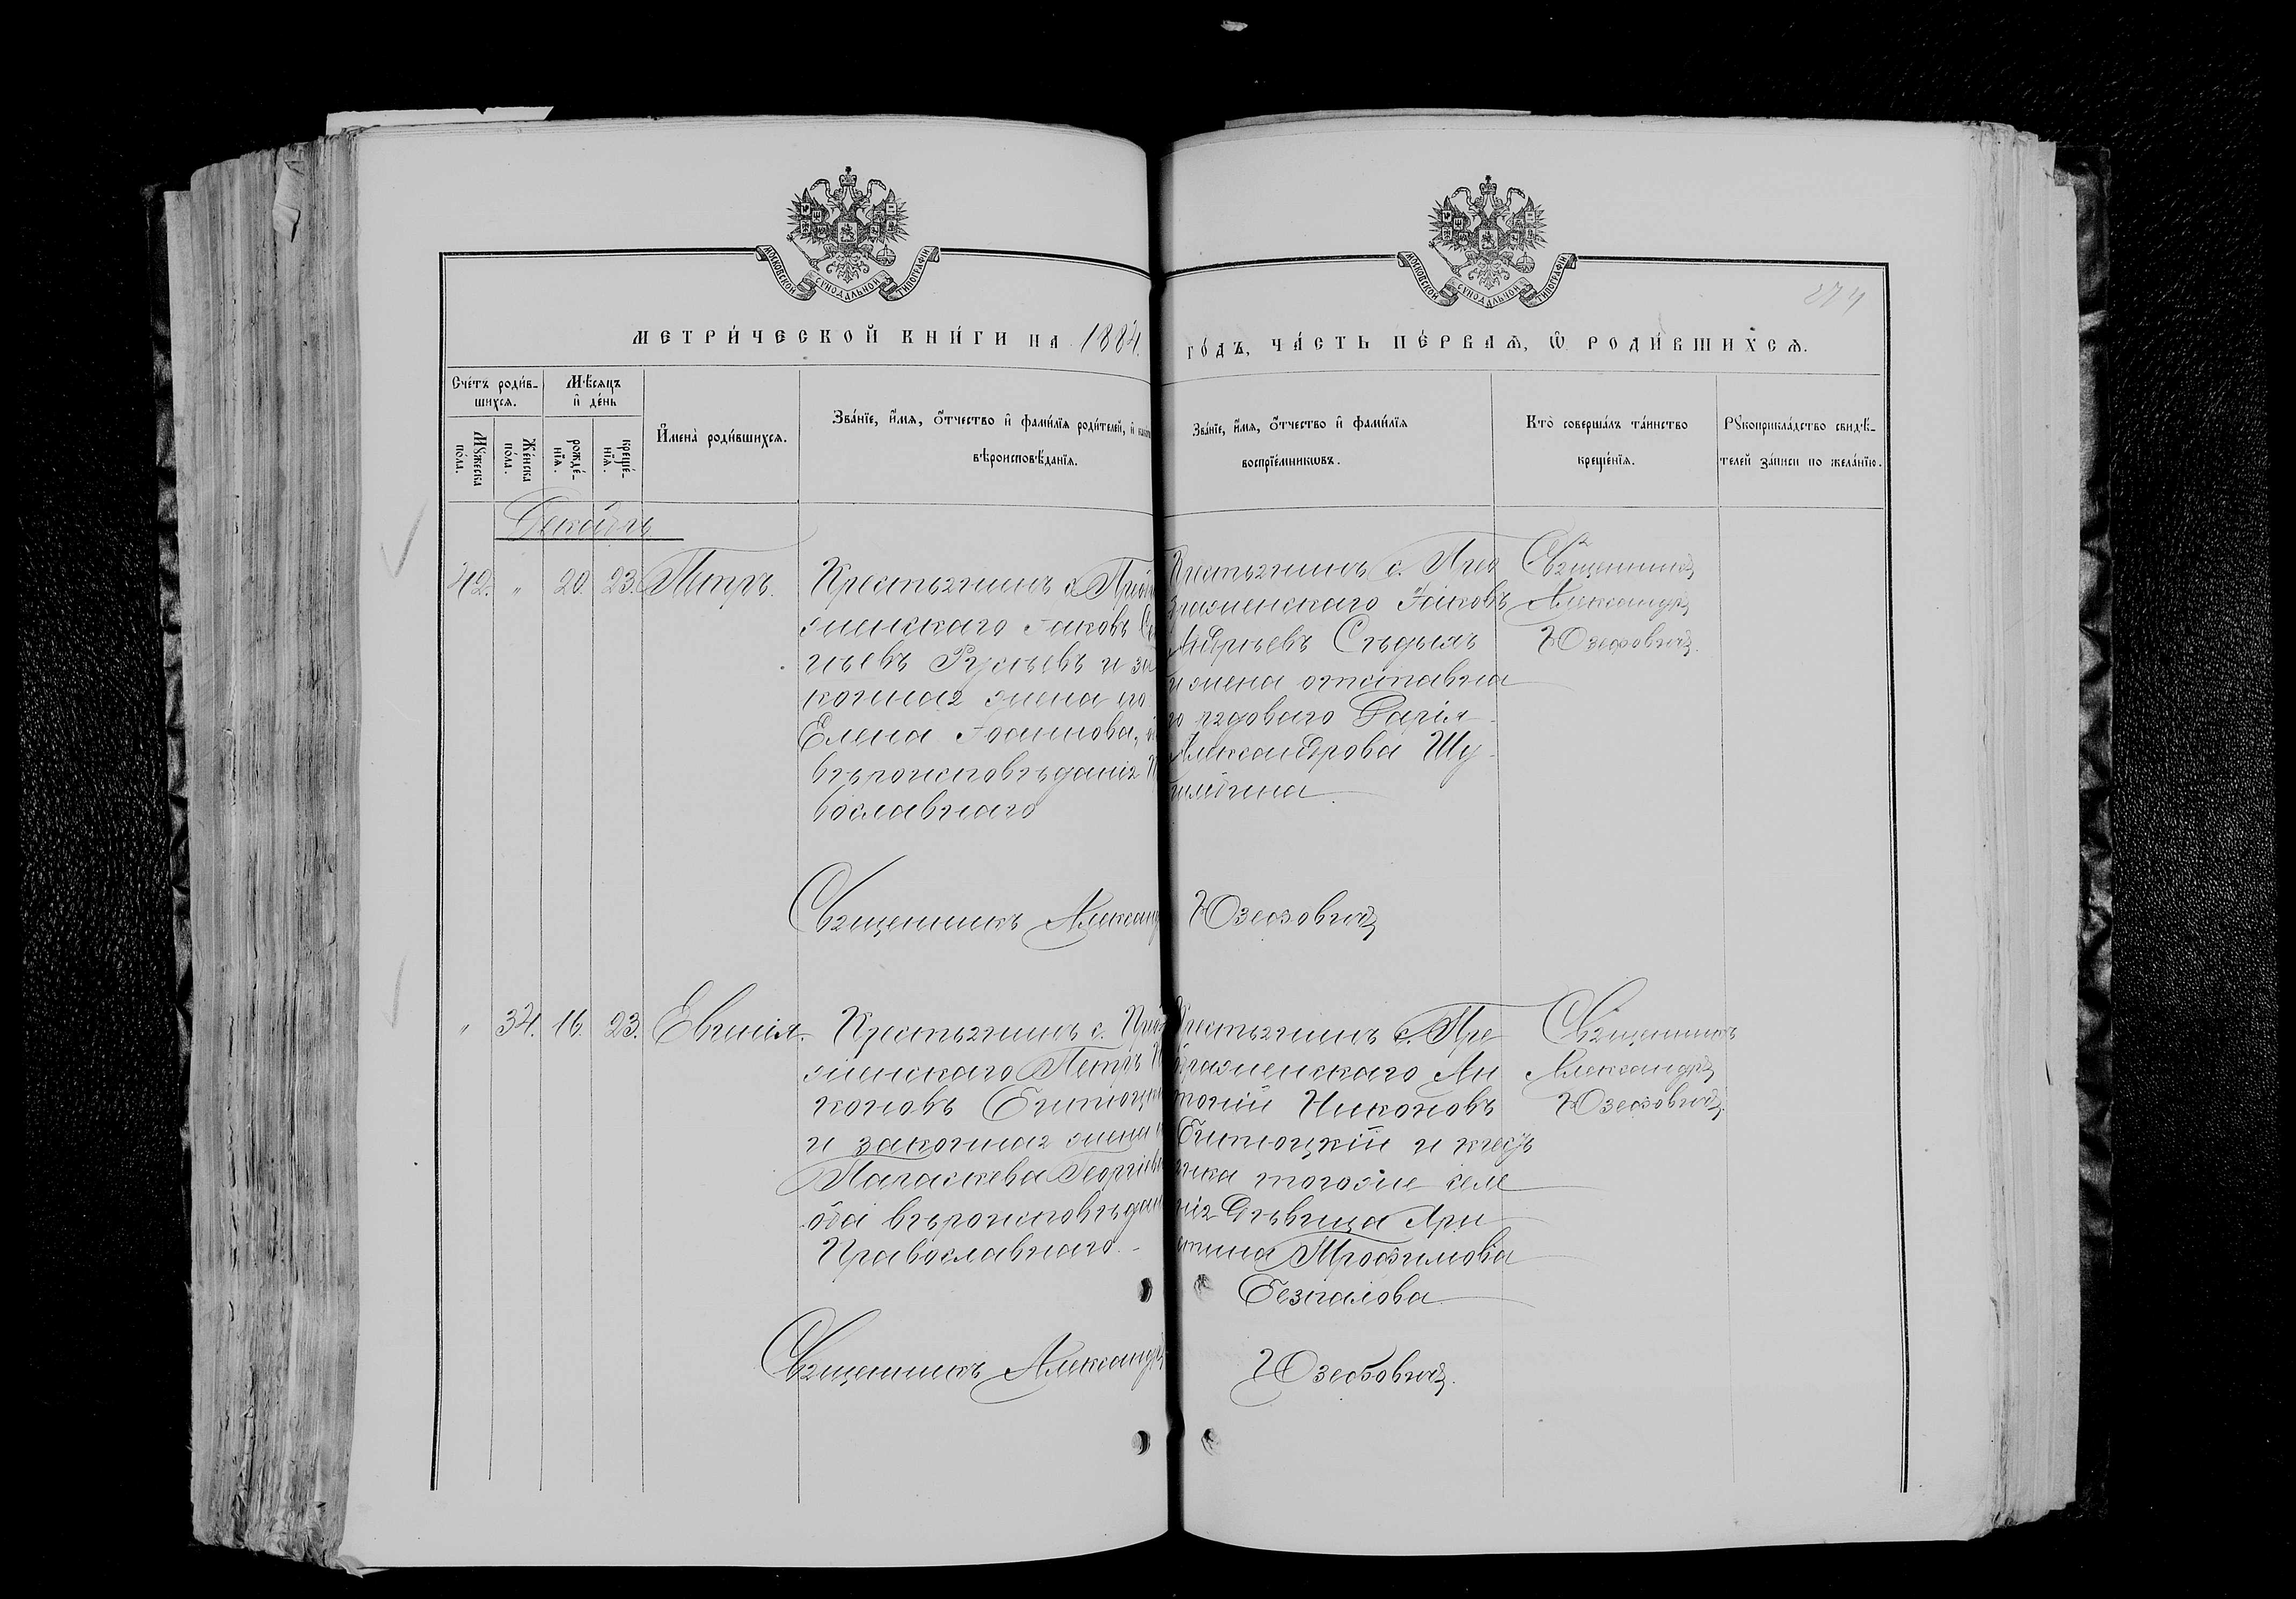 МОСКОВСКОЙ СѴНОДАЛЬНОЙ ТИПОГРАФІИ
МОСКОВСКОЙ СѴНОДАЛЬНОЙ ТИПОГРАФІИ
274
МЕТРИ́ЧЕСКОЙ КНИ́ГИ НА 1884.
ГО́ДЪ, ЧА́СТЬ ПЕ́РВАѦ, Ѡ҆ РОДИ́ВШИХСѦ.
Сче́тъ роди́в-
шихсѧ.
Мѣ́сѧцъ
и҆ де́нь
Мꙋ́жеска
по́ла.
Же́нска
по́ла.
рожде́-
нїѧ.
креще́-
нїѧ.
И҆мена̀ роди́вшихсѧ.
Зва́нїе, и҆́мѧ, ѻ҆́тчество и҆ фами́лїѧ роди́телей, и҆
вѣроисповѣ́данїѧ.
Зва́нїе, и҆́мѧ, ѻ҆́тчество и҆ фами́лїѧ
воспрїе́мникѡвъ.
Кто̀ соверша́лъ та́инство
креще́нїѧ.
Рꙋкоприкла́дство свидѣ́-
телей за́писи по жела́нїю.
Декабрь
42. " 20. 23. Петръ.
Крестьянинъ с.
женскаго Іаковъ
и за
конная жена его
Елена Іоаннова,
вѣроисповѣданія
вославнаго
Крестьянинъ с. Прео
браженскаго Іаковъ
Андреевъ
и жена отставна
го рядоваго Дарія
Александрова Шу
Священникъ
Александръ
Юзефовичъ.
Священникъ Александръ Юзефовичъ
" 34. 16. 23. Евгенія.
Крестьянинъ с.
женскаго Петръ
коновъ
и законная жена
Параскева Георгіева
оба вѣроисповѣданія
Православнаго. -
Крестьянинъ с. Пре
ображенскаго Ан
тоній Никоновъ
и крестья
нка тогоже селе
нія дѣвица Хри
стина Трофимова
Безпалова.
Священникъ
Александръ
Юзефовичъ.
Священникъ Александръ Юзефовичъ.